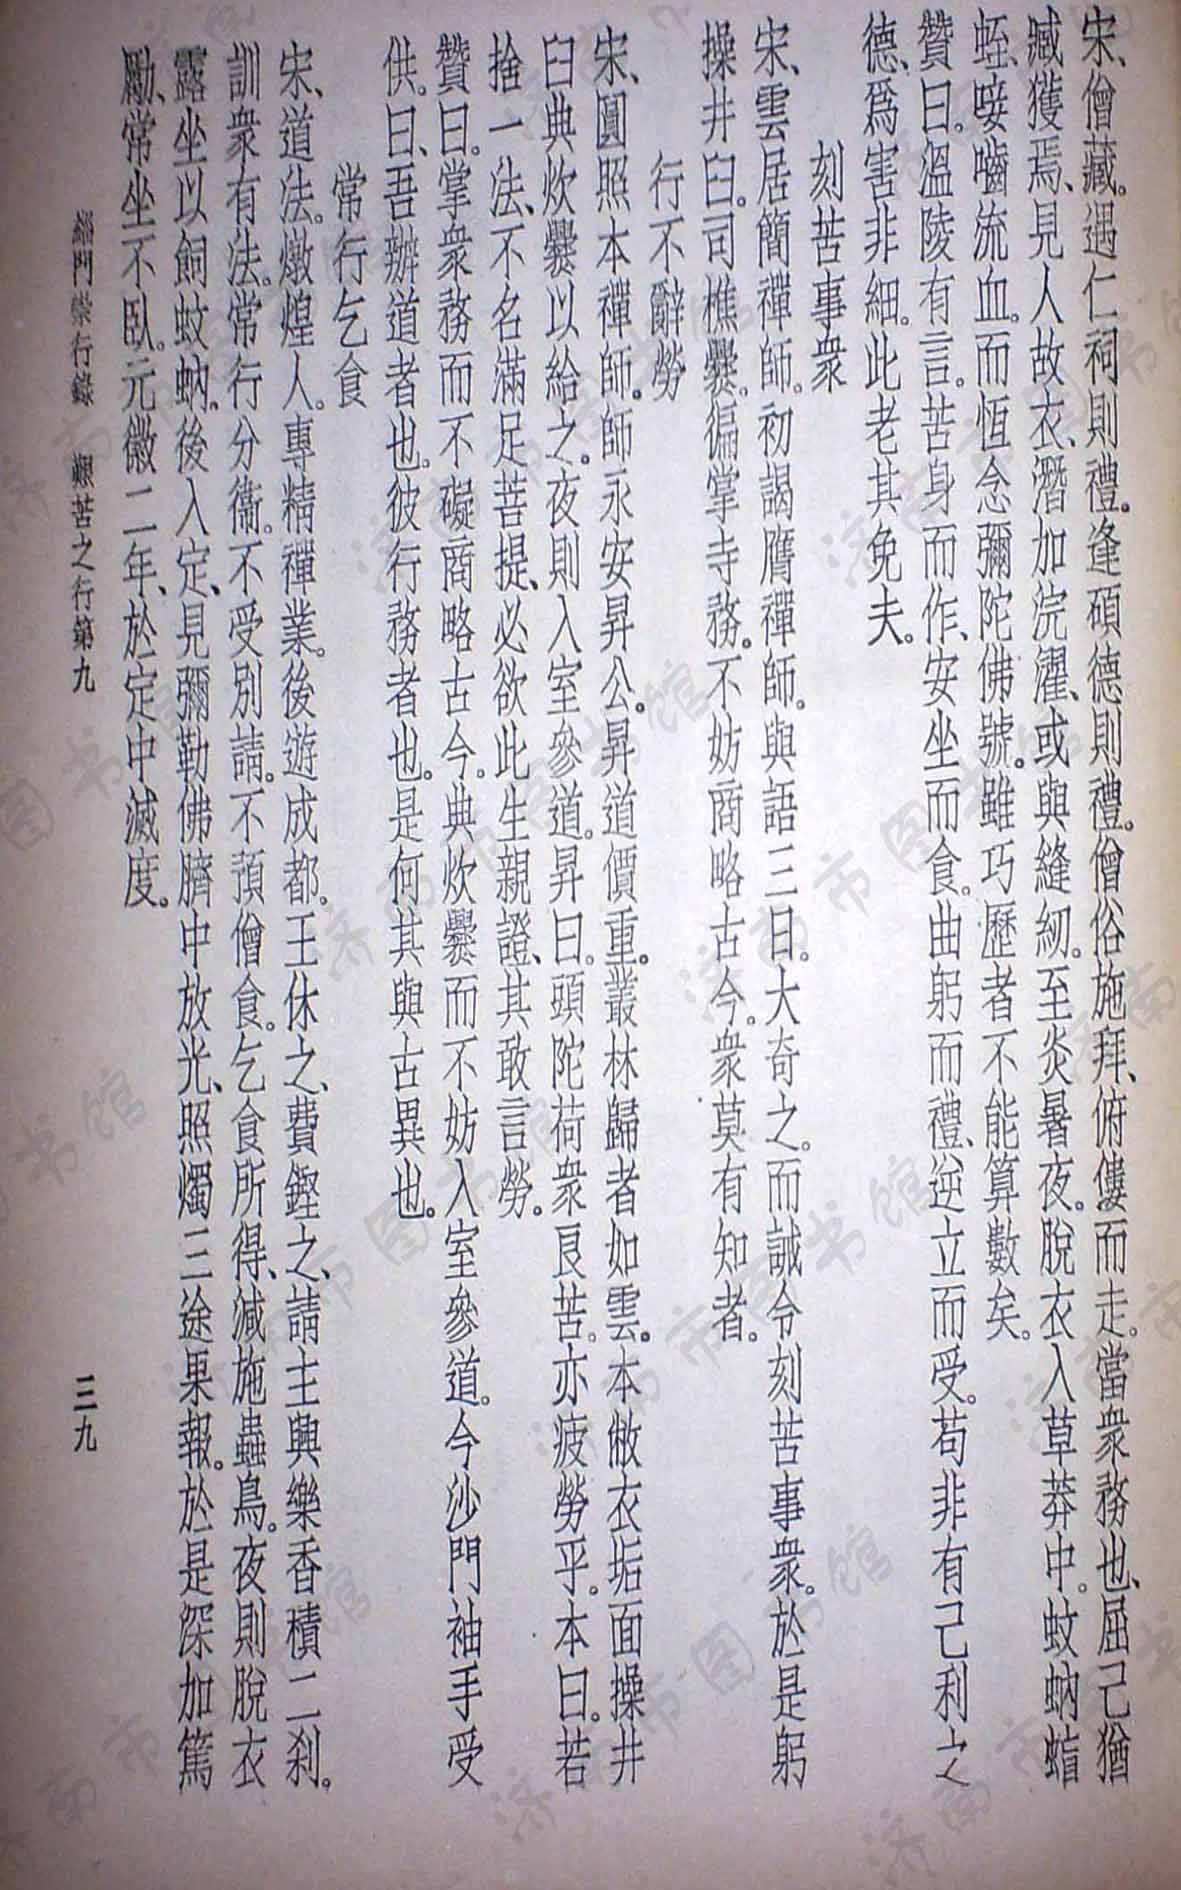 宋、僧藏。遇仁祠則禮。逢碩德則禮。僧俗施拜、俯僂而走。當衆務也、屈己猶
臧獲焉、見人故衣、潛加浣濯、或與縫紉。至炎暑夜。脫衣入草莽中。蚊蚋蛒
蛭、唼嚙流血。而恆念彌陀佛號。雖巧歷者不能算數矣。
贊曰。溫陵有言。苦身而作、安坐而食。曲躬而禮、逆立而受。苟非有己利之
德、爲害非細。此老其免夫。
刻苦事衆
宋、雲居簡禪師。初謁膺禪師。與語三日。大奇之。而誡令刻苦事衆。於是躬
操井臼。司樵爨。徧掌寺務。不妨商略古今。衆莫有知者。
行不辭勞
宋、圓照本禪師。師永安昇公。昇道價重。叢林歸者如雲。本敝衣垢面操井
臼典炊爨以給之。夜則入室參道。昇曰。頭陀荷衆良苦。亦疲勞乎。本曰。若
捨一法、不名滿足菩提、必欲此生親證、其敢言勞。
贊曰。掌衆務而不礙商略古今。典炊爨而不妨入室參道。今沙門袖手受
供。曰、吾辦道者也。彼行務者也。是何其與古異也。
常行乞食
宋、道法。燉煌人。專精禪業。後遊成都。王休之、費鏗之、請主興樂香積二刹。
訓衆有法。常行分衞。不受別請。不預僧食。乞食所得、減施蟲鳥。夜則脫衣
露坐以飼蚊蚋。後入定、見彌勒佛臍中放光、照燭三途果報。於是深加篤
勵、常坐不臥。元徽二年、於定中滅度。
緇門崇行錄　艱苦之行第九
三九
济南市图书馆